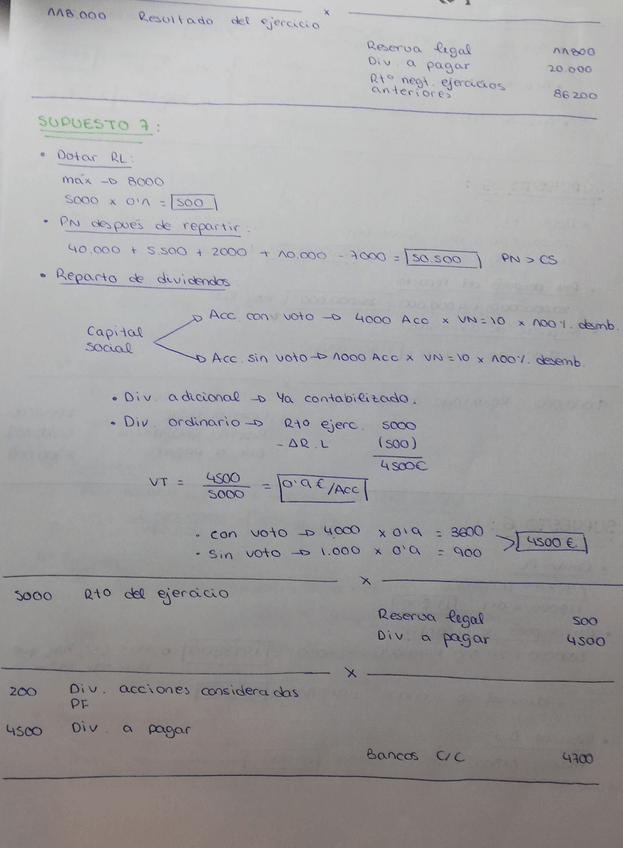 118.000 Resultado del ejercicio
x
Reserva legal 11800
Div. a pagar 20.000
Rtº negt. ejercicios
anteriores 86200
SUPUESTO 7:
• Dotar RL:
máx → 8000
5000 x 0'1 = 500
• PN después de repartir:
40.000 + 5.500 + 2000 + 10.000 - 7000 = 50.500 PN > CS
• Reparto de dividendos
Capital social
Acc con voto → 4000 Acc x VN=10 x 100% desmb.
Acc. sin voto → 1000 Acc x VN=10 x 100% desemb.
• Div. adicional → Ya contabilizado.
• Div. ordinario → Rtº ejerc. 5000
- ΔR.L (500)
4500€
VT = 4500 / 5000 = 0'9 €/Acc
• con voto → 4000 x 0'9 = 3600
• sin voto → 1.000 x 0'9 = 900
4500 €
x
5000 Rtº del ejercicio
Reserva legal 500
Div. a pagar 4500
x
200 Div. acciones consideradas
PF
4500 Div. a pagar
Bancos C/C 4700